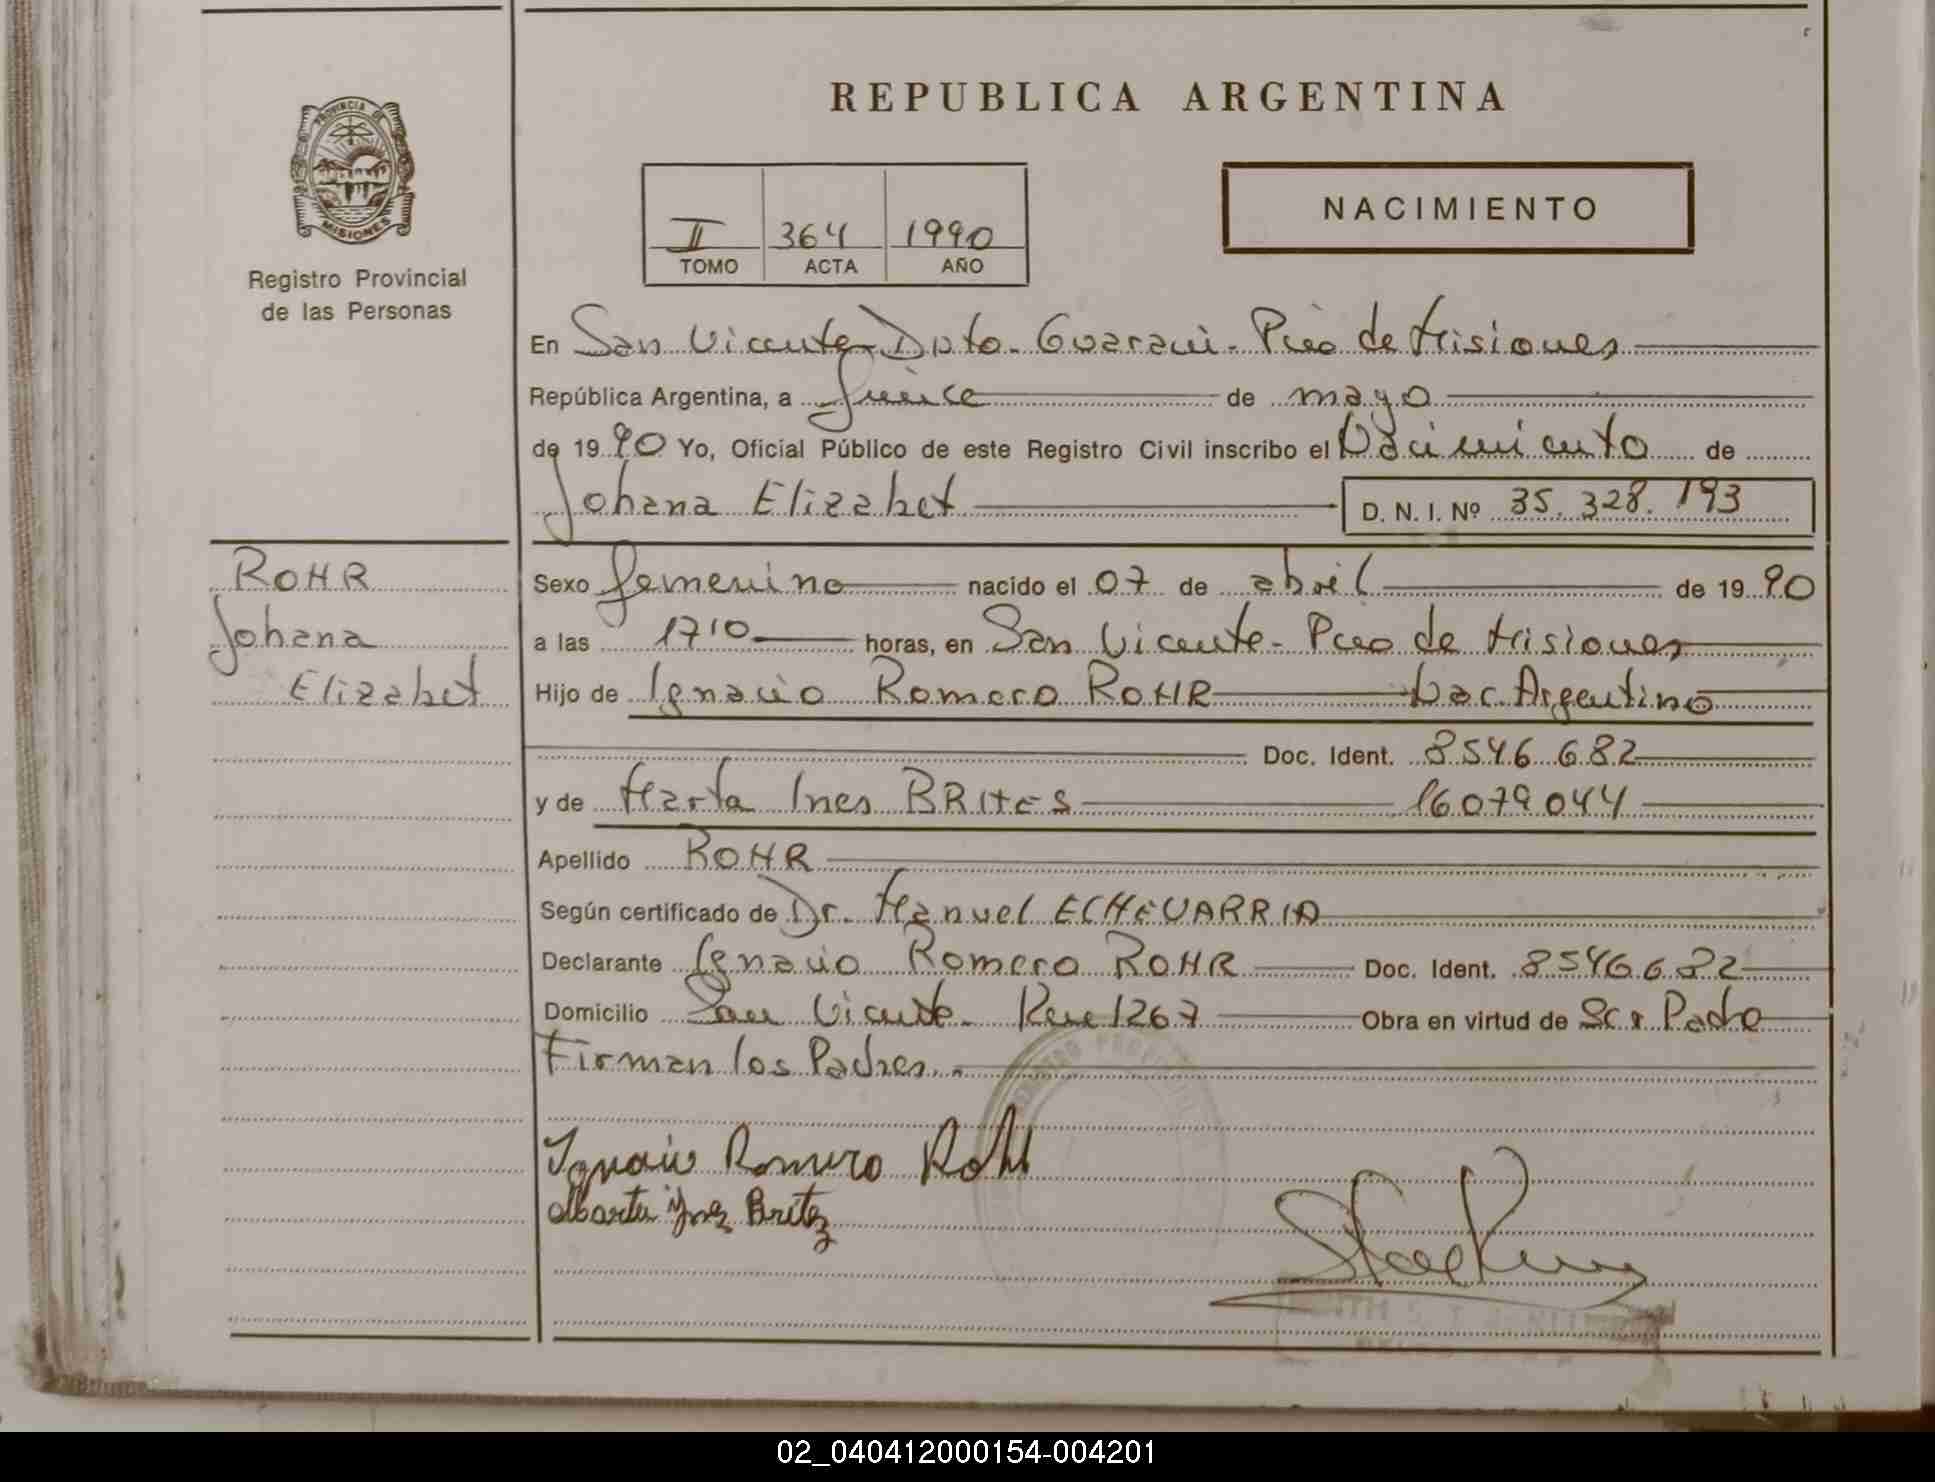 PROVINCIA DE
MISIONES
Registro Provincial
de las Personas
REPUBLICA ARGENTINA
NACIMIENTO
II 364 1990
TOMO ACTA AÑO
En San Vicente Dpto. Guarani - Pcio de Misiones
República Argentina, a quince de mayo
de 1990 Yo, Oficial Público de este Registro Civil inscribo el Nacimiento de
Johana Elizabet D. N. I. Nº 35.328.193
ROHR
Johana
Elizabet
Sexo femenino nacido el 07 de abril de 1990
a las 1710 horas, en San Vicente - Pcio de Misiones
Hijo de Ignacio Romero ROHR Nac. Argentino
Doc. Ident. 8546682
y de Marta Ines BRITES 16079044
Apellido ROHR
Según certificado de Dr. Manuel ECHEVARRIA
Declarante Ignacio Romero ROHR Doc. Ident. 8546682
Domicilio San Vicente - Km 1267 Obra en virtud de Ser Padre
Firman los Padres.-
Ignacio Romero Rohr
Marta Ynez Britez
02_040412000154-004201